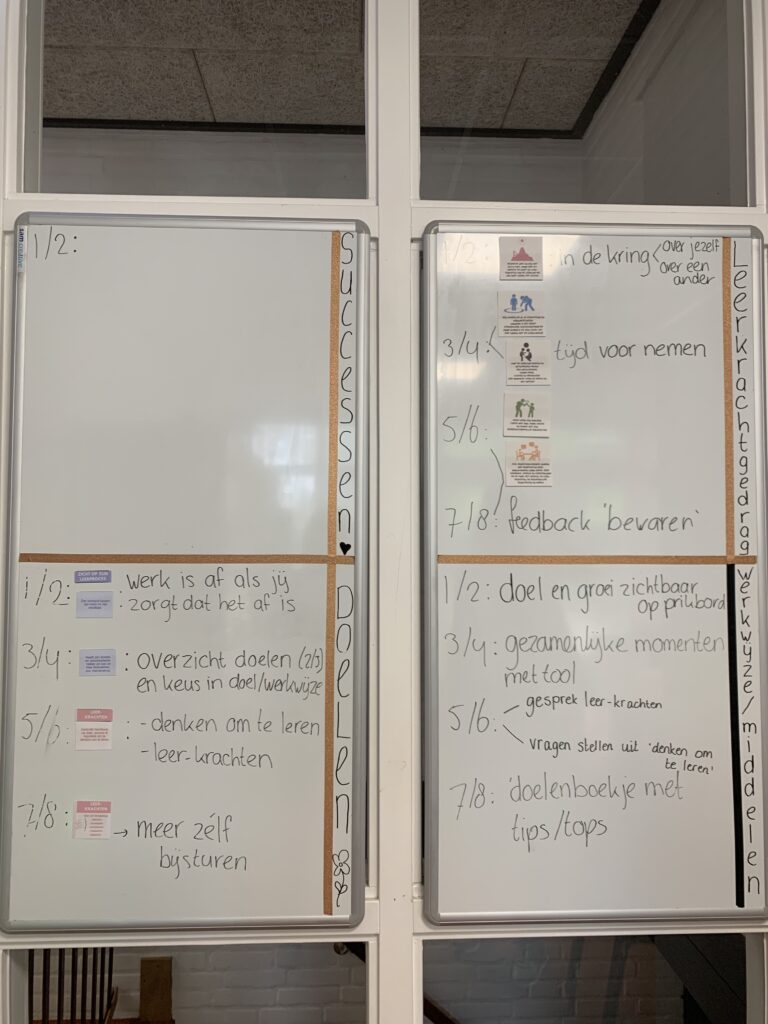 sam creative
1/2:
Successen
ZICHT OP EIJN
LEERPROCES
1/2:
: werk is af als jij
zorgt dat het af is
3/4:
: overzicht doelen (2/3)
en keus in doel/werkwijze
5/6:
LEER-
KRACHTEN
: -denken om te leren
-leer-krachten
7/8:
LEER-
KRACHTEN
→ meer zélf
bijsturen
Doelen
1/2
: in de kring
over jezelf
over een
ander
3/4:
tijd voor nemen
5/6:
7/8: feedback 'bevaren'
Leerkrachtgedrag
1/2: doel en groei zichtbaar
op prikbord
3/4: gezamenlijke momenten
met tool
5/6:
gesprek leer-krachten
vragen stellen uit 'denken om
te leren'
7/8: 'doelenboekje met
tips/tops
werkwijze/middelen